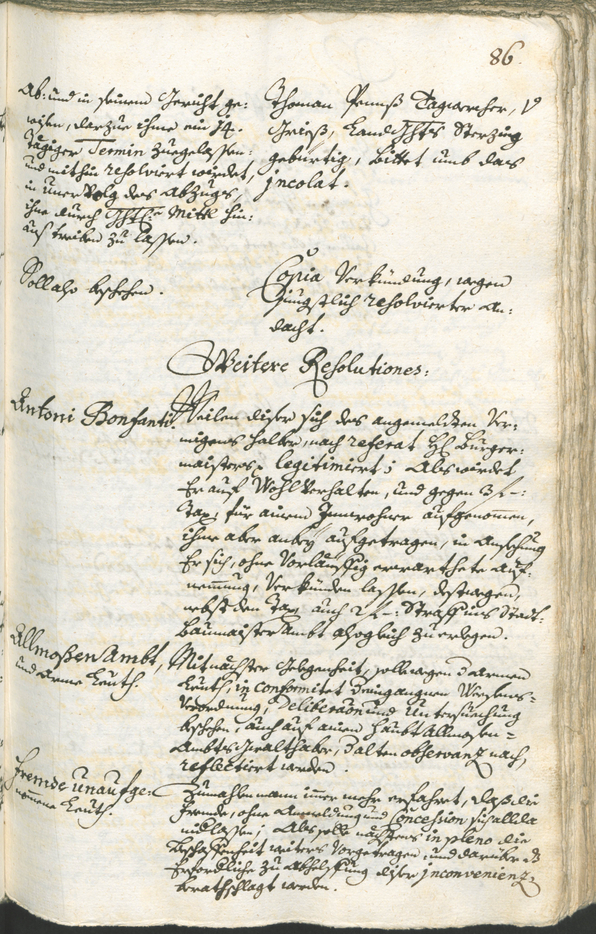 86.
Ab: und in seinem Gericht ge:
wisen, darzue ihme ein 14.
tägiger Termin zuegelassen:
und mithin resolviert würdet,
in unerfolg des Abzugs,
ihne durch Mitl hin:
aus treiben zu lassen.
Thoman Tagwercher, V
Grieß, Landghts Sterzing
gebürtig, bittet umb das
jncolat.
Soll also beschehen.
Copia Verkündung, wegen
jüngstlich resolvierter An:
dacht.
Weitere Resolutiones:
Antoni Bonfanti.
Weilen diser sich des angemeldten Ver:
mögens halber, nach referat H: Burger:
maisters legitimiert; Als würdet
Er auf Wohlverhalten, und gegen 3 f -:
Tax, für ainem Innwohner aufgenomen,
ihme aber anbey aufgetragen, in Ansehung
Er sich, ohne Vorläuffig erwarthete auf:
nemmung, Verkünden lassen, destwegen,
nebst den Tax, auch 2 f -: Straff ins Statt:
baumaister Ambt alsoglich zuerlegen.
Allmosen Ambt,
und Arme Leuth.
Mit nächster Gelegenheit, soll wegen d Armen
Leuth, in conformitet
Verordnung, Deliberation und Untersuechung
beschehen, auch auf ainen Haubt Allmosen=
Ambts Gwalthaber, d alten observanz nach,
reflectiert werden.
Fremde unaufge:
nomene Leuth.
Zumahlen man imer mehr erfahret, daß die
fremde, ohne Anmeldung und Concession sich allda
nidlassen; Als solle nächstens in pleno die
Beschaffenheit weiters Vorgetragen, und darüber dz
Erfordliche zu Abhelffung diser jnconvenienz
berathschlagt werden.